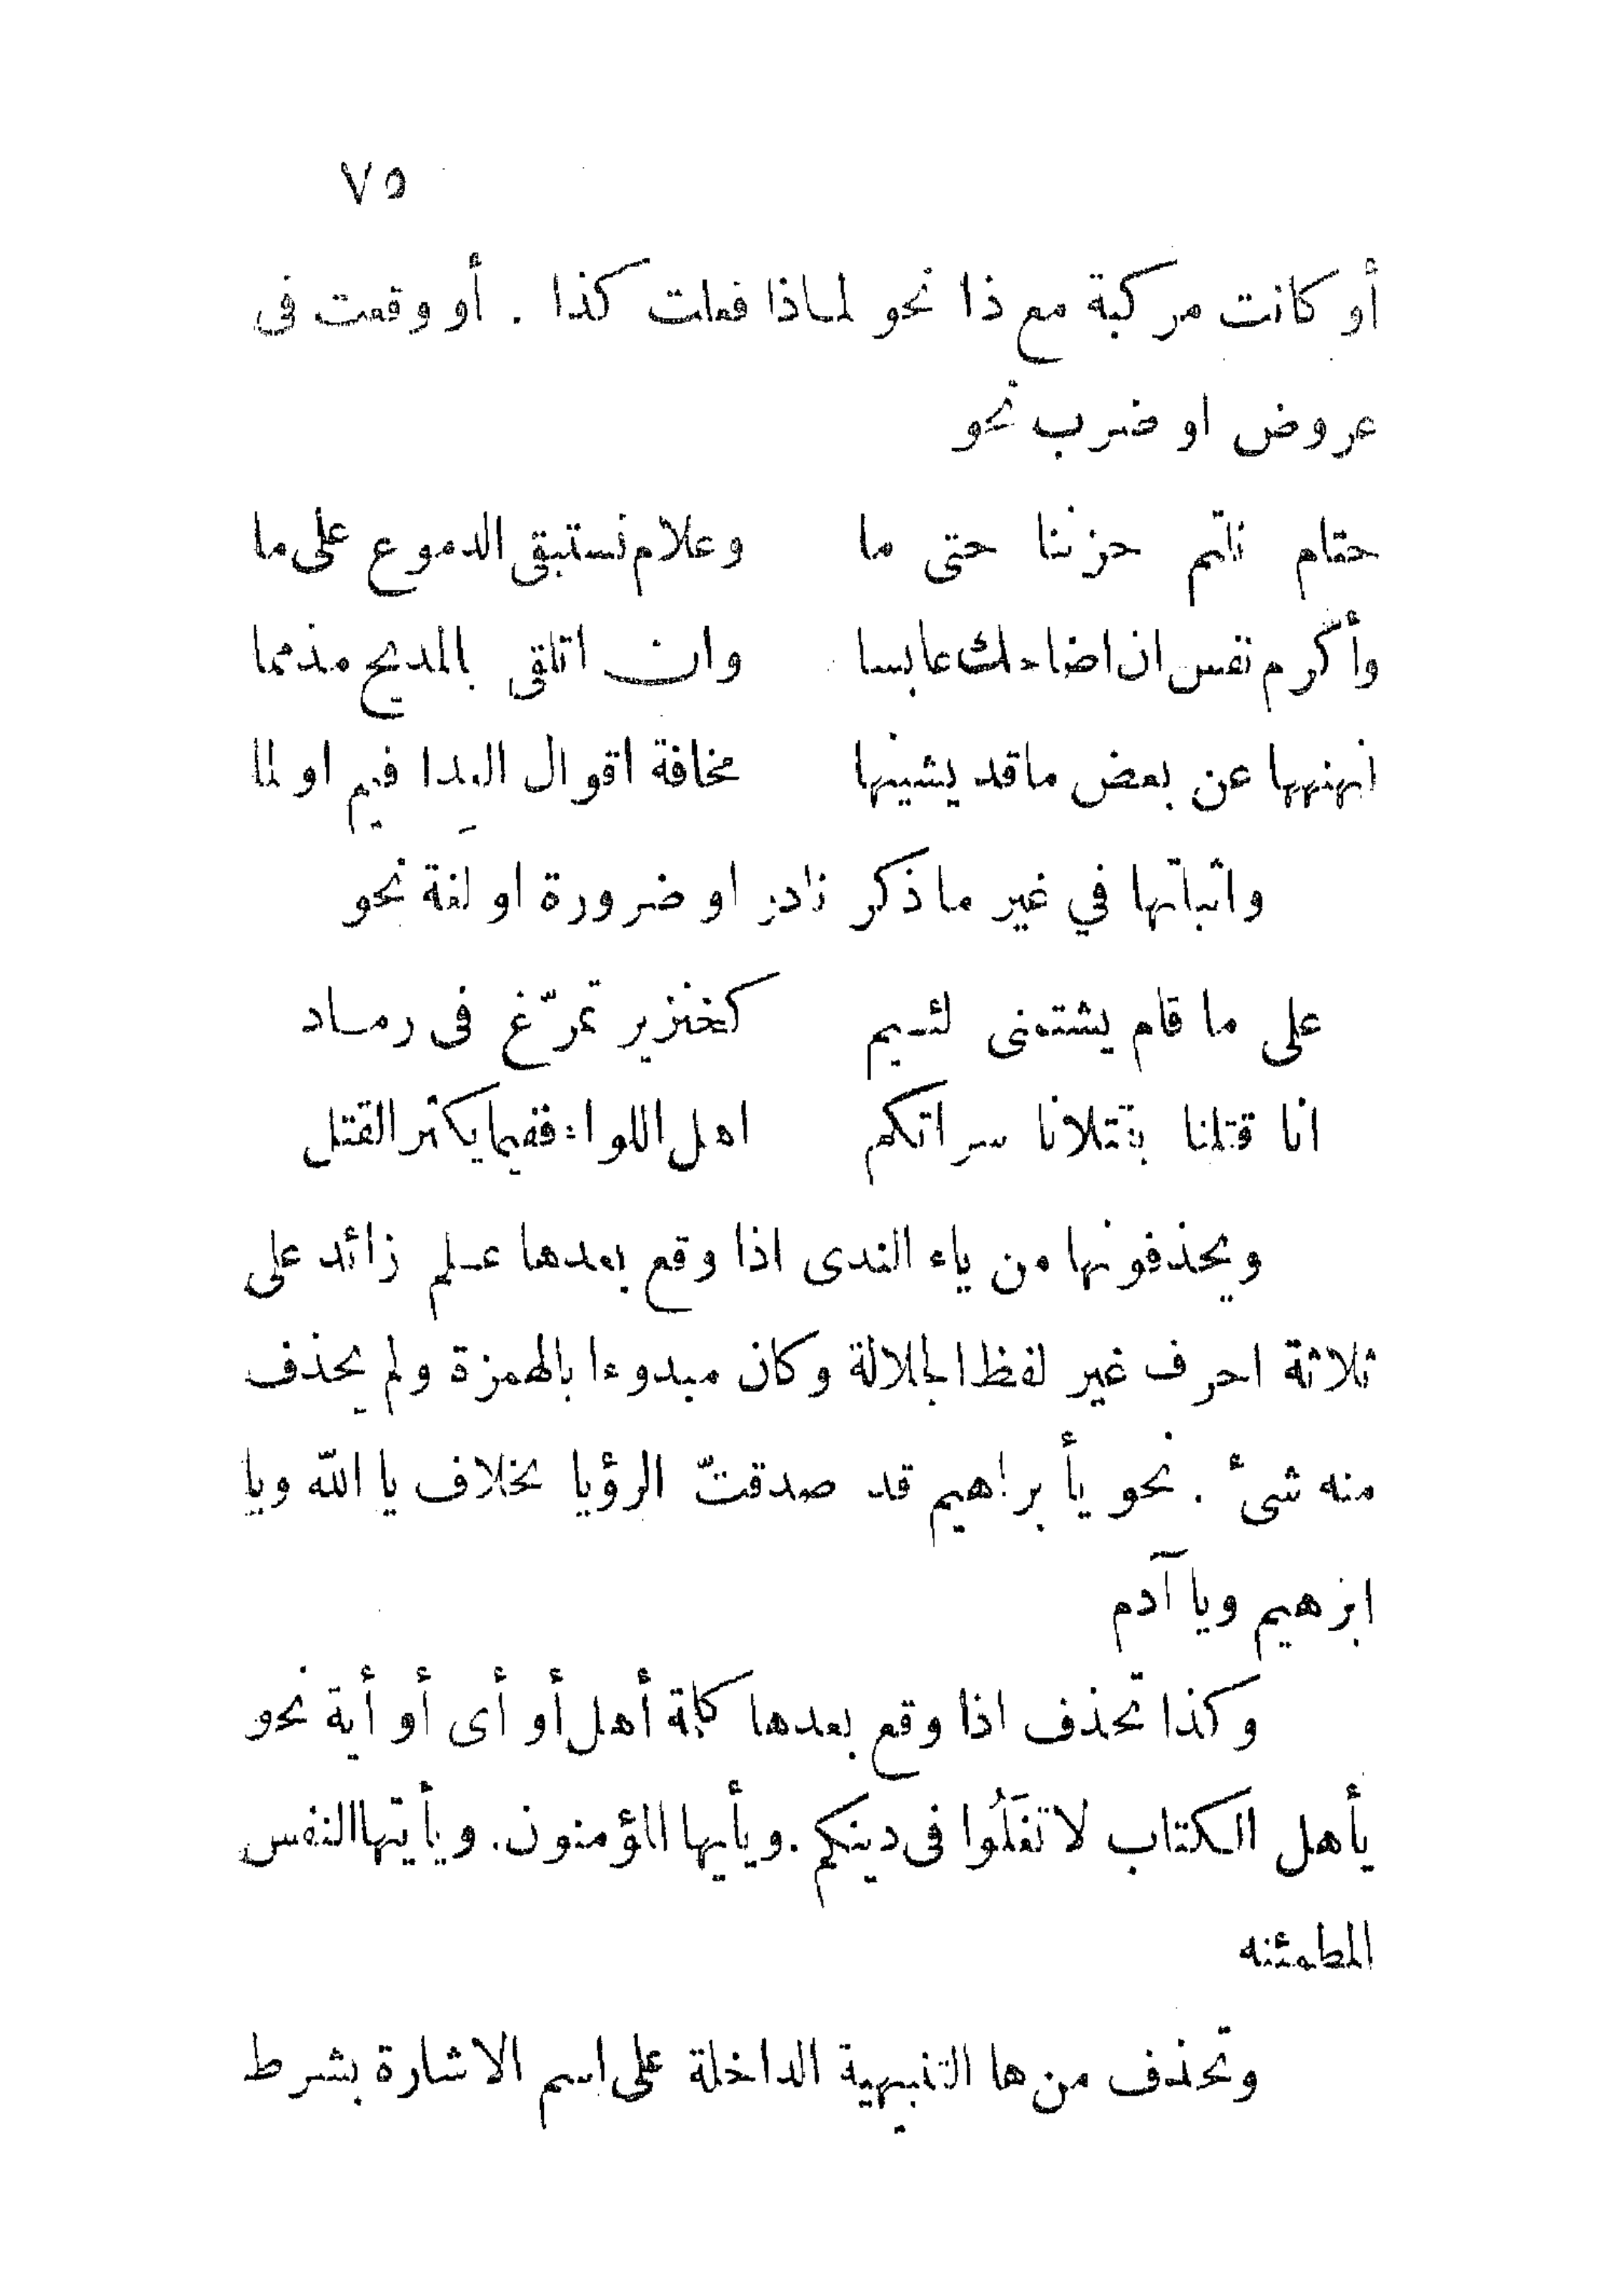 ٧٥
أو كانت مركبة مع ذا نحو لماذا فعلت كذا . أو وقعت فى
عروض او ضرب نحو
حتام نلتم حزننا حتى ما وعلام نستبقى الدموع على ما
وأكرم نفسى ان اضاحك عابسا وان اتلقى بالمديح مذمما
انهنهها عن بعض ما قد يشينها مخافة اقوال العِدا فيم او لما
واثباتها في غير ما ذكر نادر او ضرورة او لغة نحو
على ما قام يشتمنى لئيم كخنزير تمرّغ فى رماد
انا قتلنا بقتلانا سراتكم اهل اللواء ففيما يكثر القتل
ويحذفونها من ياء الندى اذا وقع بعدها علم زائد على
ثلاثة احرف غير لفظ الجلالة وكان مبدوءا بالهمزة ولم يحذف
منه شئ . نحو يأبراهيم قد صدقتّ الرؤيا بخلاف يا اللّه ويا
ابرهيم ويا آدم
وكذا تحذف اذا وقع بعدها كلمة أهل أو أى أو أية نحو
يأهل الكتاب لا تغلُوا فى دينكم . ويأيها المؤمنون . ويأيتها النفس
المطمئنه
وتحذف من ها التنبيهية الداخلة على اسم الاشارة بشرط